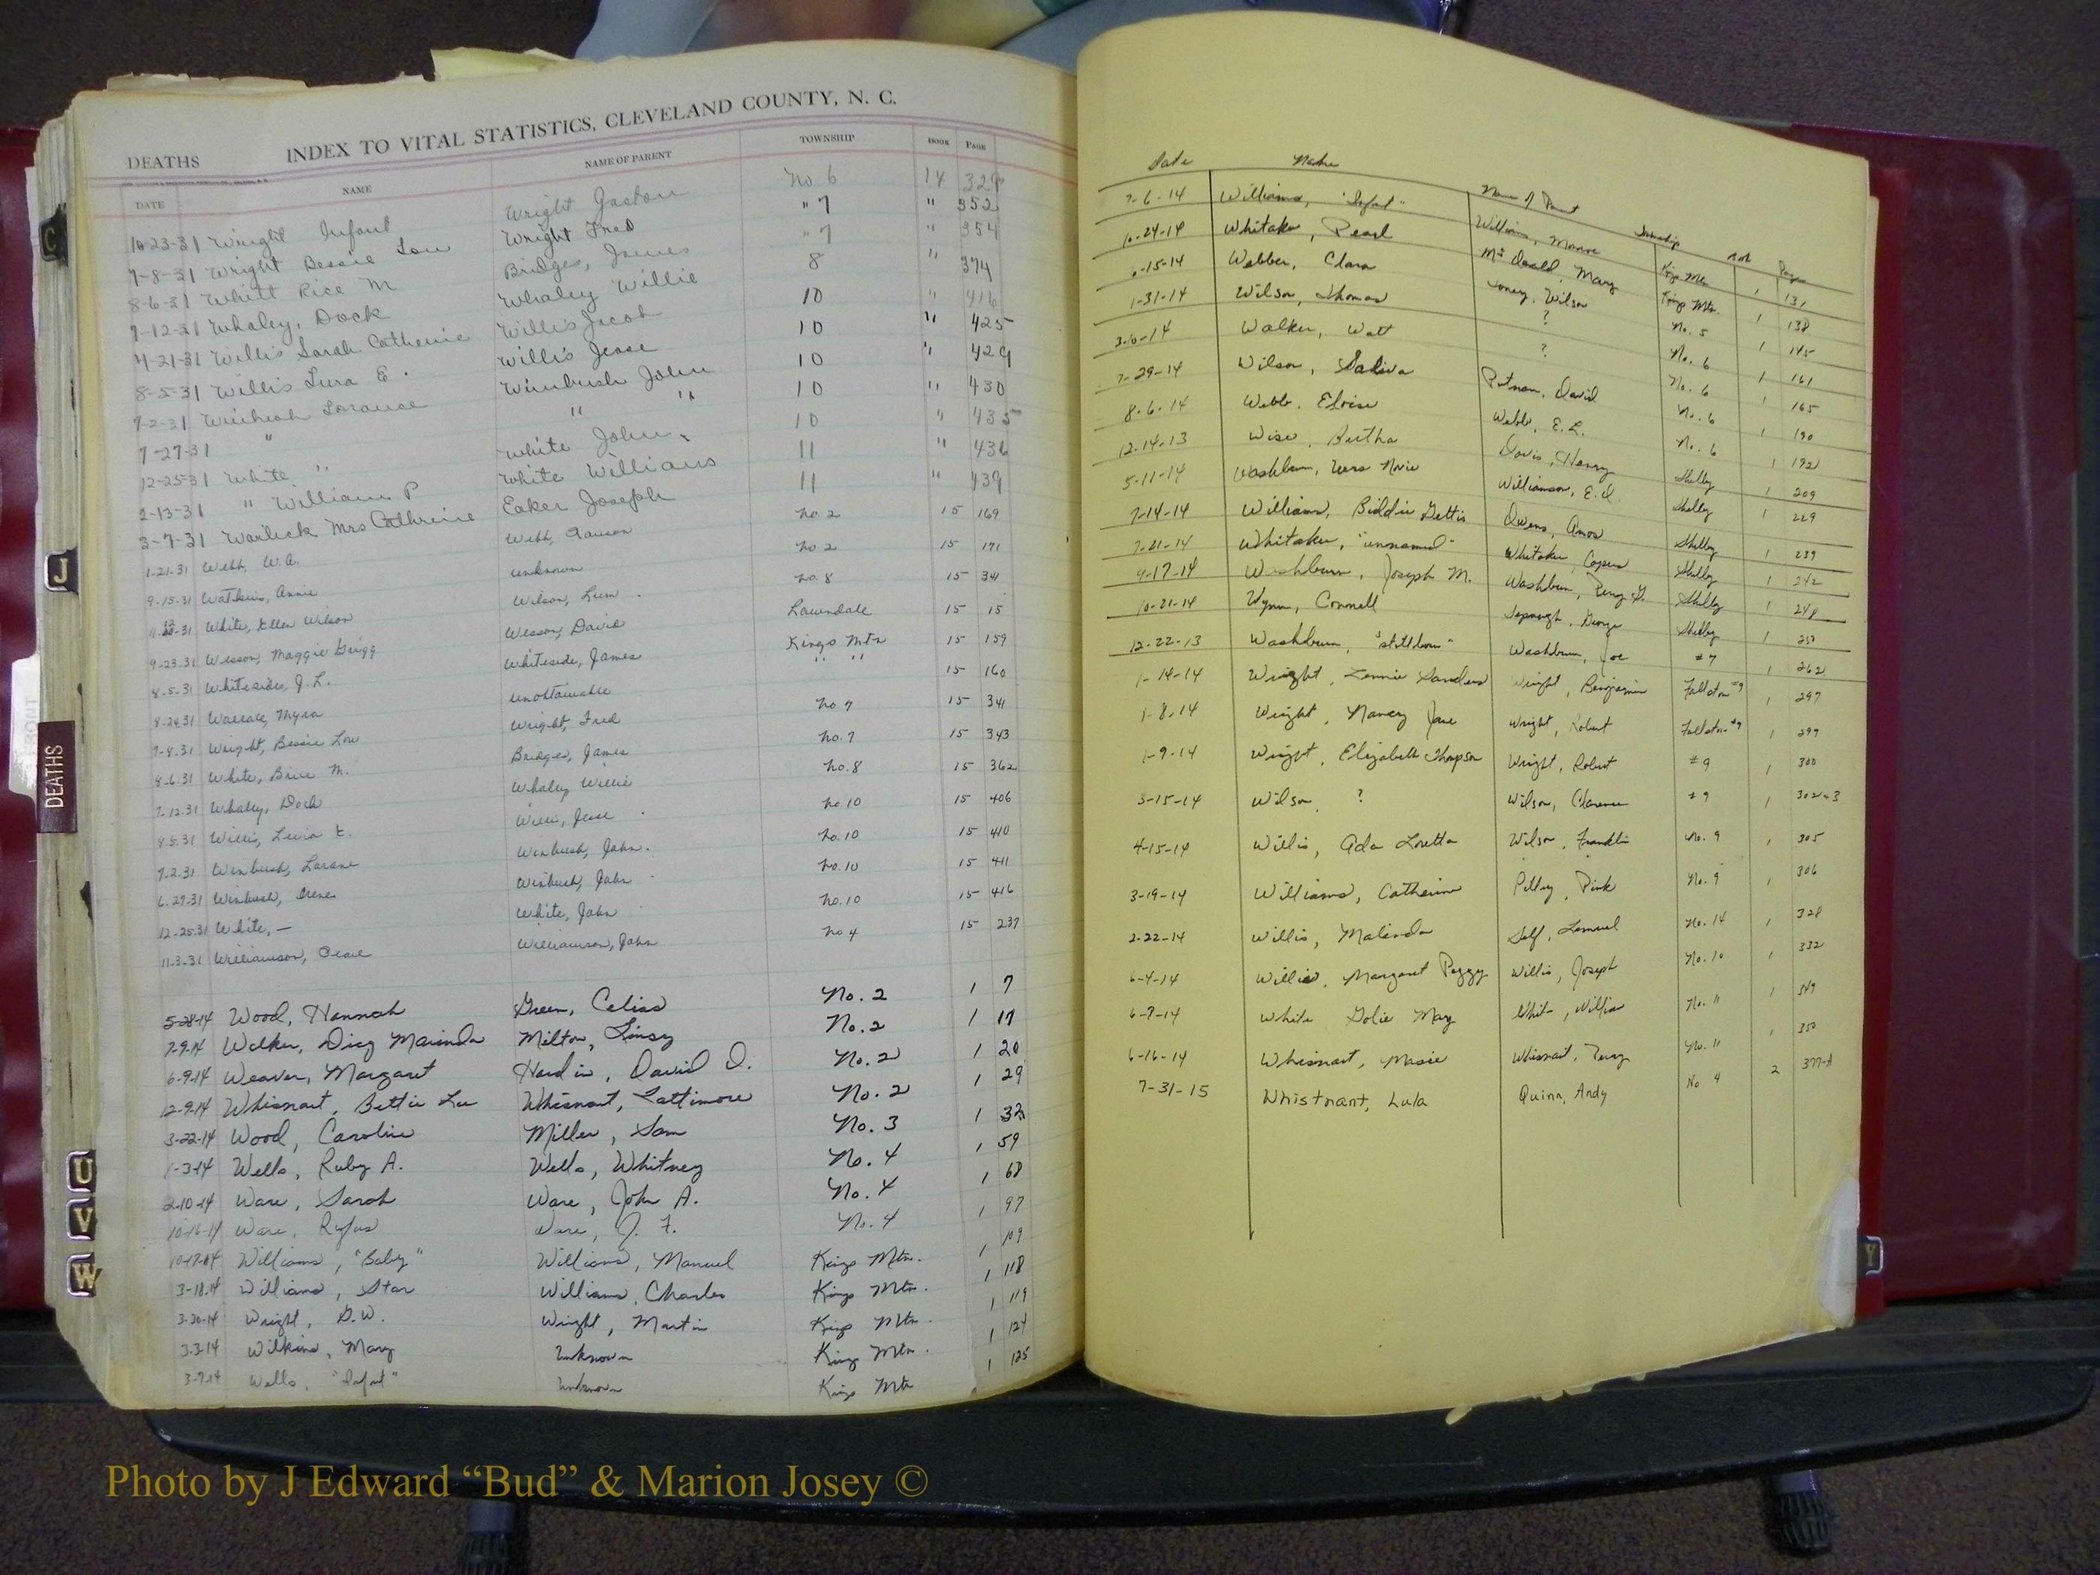 INDEX TO VITAL STATISTICS, CLEVELAND COUNTY, N. C.
DEATHS
DATE NAME NAME OF PARENT TOWNSHIP BOOK PAGE
10-23-31 Wright Infant Wright Gaston No. 6 14 329
7-8-31 Wright Bessie Lou Wright Fred " 7 " 352
8-6-31 Whitt Rice M Bridges, James " 7 " 354
7-12-31 Whaley, Dock Whaley Willie 8 " 374
4-21-31 Willis Sarah Catherine Willis Jacob 10 " 416
8-5-31 Willis Lura E. Willis Jesse 10 " 425
7-2-31 Winbush Lorance Winbush John 10 " 429
7-27-31 " " " 10 " 430
12-25-31 White White John 10 " 435
2-13-31 " William P White Williams 11 " 436
3-7-31 Warlick Mrs Cathreine Eaker Joseph 11 " 439
1-21-31 Webb, W.A. Webb, No. 2 15 169
9-15-31 Watkins, Annie Unknown No. 2 15 171
White, Ellen Wilson Wilson, Lum No. 8 15 341
9-23-31 Wesson, Maggie Grigg Wesson, David Lawndale 15 15
8-5-31 Whitesides, J. L. Whiteside, James Kings Mtn 15 159
8-24-31 Wallace, Myra Unobtainable " " 15 160
7-8-31 Wright, Bessie Lou Wright, Fred No. 7 15 341
8-6-31 White, Brice M. Bridges, James No. 7 15 343
7-12-31 Whaley, Dock Whaley Willie No. 8 15 362
8-5-31 Willis, E. Willis, Jesse No 10 15 406
7-2-31 Winbush, Lorane Winbush, John No. 10 15 410
6-27-31 Winbush, Irene Winbush, John No. 10 15 411
12-25-31 White, — White, John No. 10 15 416
11-3-31 Williamson, Williamson, John No 4 15 237
5-28-14 Wood, Hannah Green, No. 2 1 7
7-9-14 Walker, Dicy Marinda Milton, Linsy No. 2 1 17
6-9-14 Weaver, Margaret Hardin, David D. No. 2 1 20
12-9-14 Whisnant, Bettie Lee Whisnant, Lattimore No. 2 1 29
3-22-14 Wood, Caroline Miller, Sam No. 3 1 32
1-3-14 Wells, Ruby A. Wells, Whitney No. 4 1 59
2-10-14 Ware, Sarah Ware, John A. No. 4 1 68
10-16-14 Ware, Rufus Ware, J. F. No. 4 1 97
10-17-14 Williams, "Baby" Williams, Manuel Kings Mtn. 1 109
3-18-14 Williams, Star Williams, Charles Kings Mtn. 1 118
3-30-14 Wright, D.W. Wright, Martin Kings Mtn. 1 119
3-3-14 Wilkins, Mary Unknown Kings Mtn. 1 124
3-7-14 Wells, "Infant" Unknown Kings Mtn 1 125
Date Name Name of Parent Township Book Page
7-6-14 Williams, "Infant" Williams, Monroe Kings Mtn 1 131
10-24-14 Whitaker, Pearl McDonald, Mary Kings Mtn. 1 138
6-15-14 Webber, Clara Toney, Wilson No. 5 1 145
1-31-14 Wilson, Thomas ? No. 6 1 161
3-10-14 Walker, Watt ? No. 6 1 165
7-29-14 Wilson, Putnam, David No. 6 1 190
8-6-14 Webb, Eloise Webb, E. L. No. 6 1 192
12-14-13 Wise, Bertha Davis, Henry Shelby 1 209
5-11-14 Washburn, Novie Williamson, E. D. Shelby 1 229
7-14-14 Williams, Biddie Gettis Owens, Amos Shelby 1 239
7-21-14 Whitaker, "unnamed" Whitaker, Shelby 1 242
9-17-14 Washburn, Joseph M. Washburn, Perry G. Shelby 1 248
10-21-14 Wynn, Connell George Shelby 1 250
12-22-13 Washburn, "stillborn" Washburn, Joe #7 1 262
1-14-14 Wright, Lennie Sanders Wright, Benjamin Fallston #9 1 297
1-8-14 Wright, Nancy Jane Wright, Robert Fallston #9 1 299
1-9-14 Wright, Elizabeth Thompson Wright, Robert #9 1 300
3-15-14 Wilson, ? Wilson, Clarence #9 1 302+3
4-15-14 Willis, Ada Loretta Wilson, Franklin No. 9 1 305
3-19-14 Williams, Catherine Pink No. 9 1 306
2-22-14 Willis, Malinda Self, Lemuel No. 14 1 328
6-4-14 Willis, Margaret Peggy Willis, Joseph No. 10 1 332
6-7-14 White Golie May White, William No. 11 1 349
6-16-14 Whisnant, Masie Whisnant, No. 11 1 350
7-31-15 Whistnant, Lula Quinn, Andy No 4 2 377-A
C
J
DEATHS
U
V
W
Y
Photo by J Edward “Bud” & Marion Josey ©